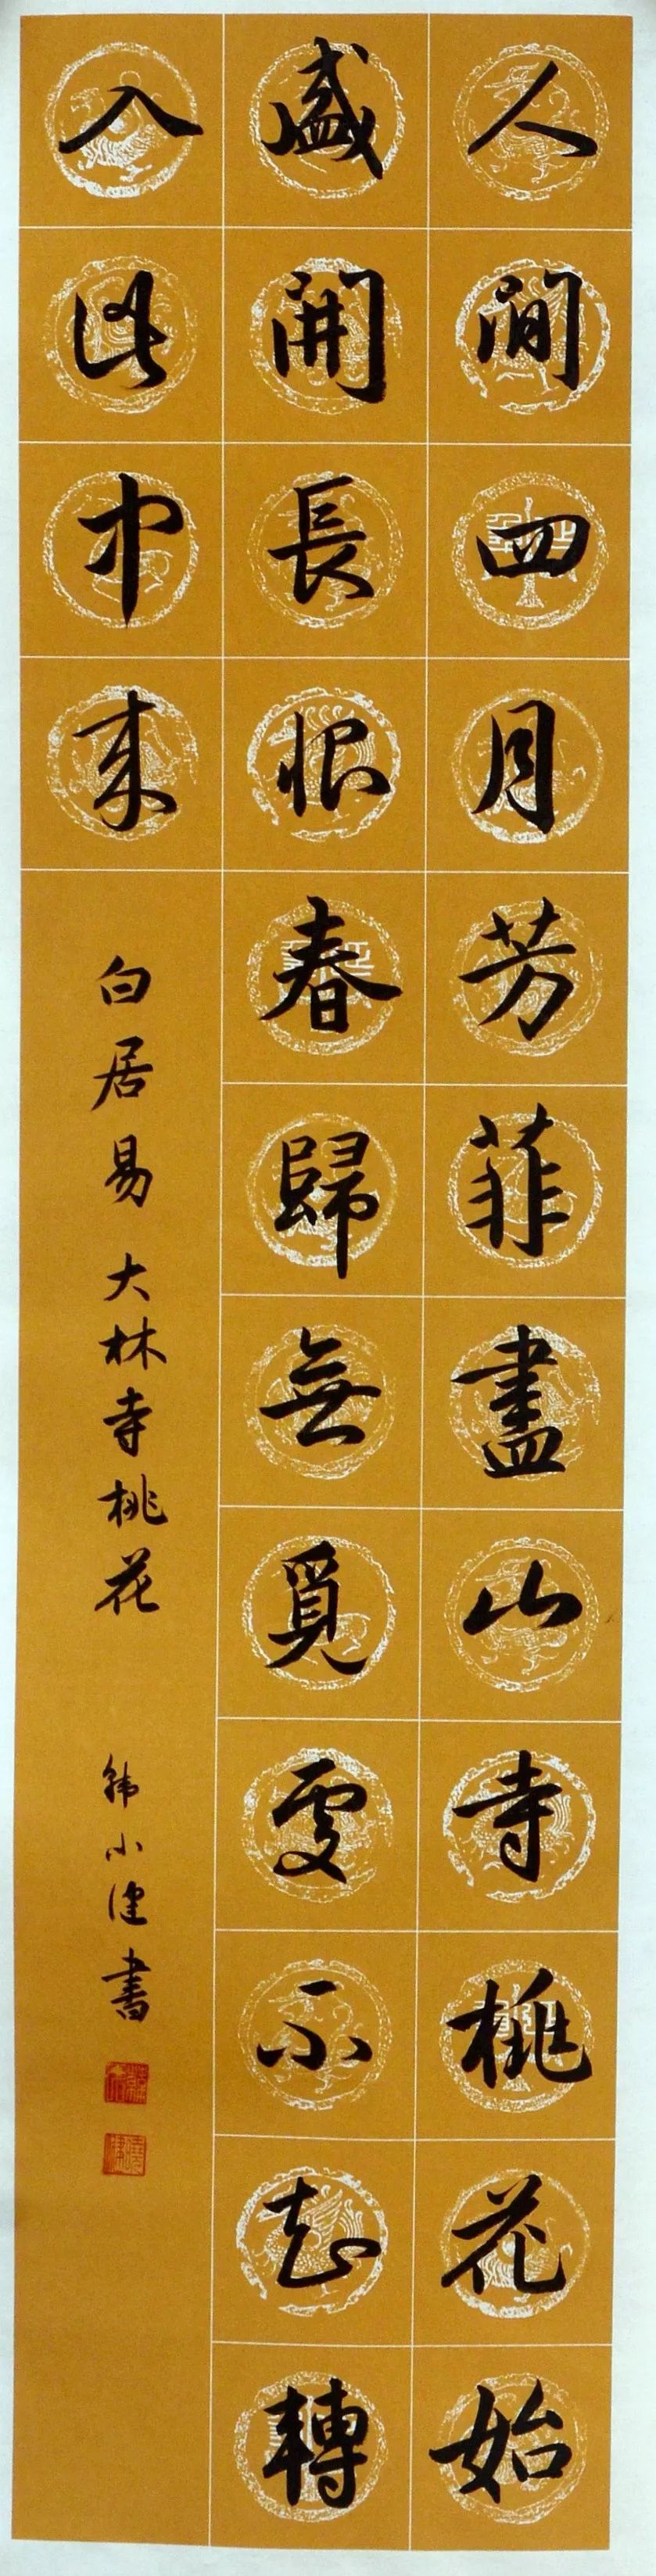 人間四月芳菲盡山寺桃花始
盛開長恨春歸無覓處不知轉
入此中來
白居易 大林寺桃花
小健書